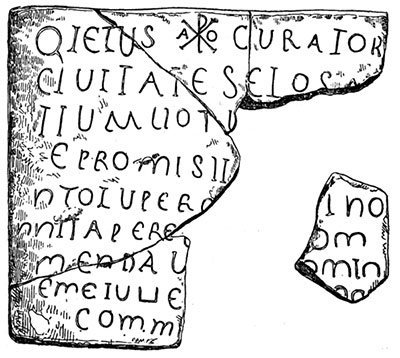 QIETUS A☧O CURATOR
CIUITATE SEIOS
TIUMUOTU
EPROMISII
NTOLUPERO
NNITAPERE
MENDAU
EMEIULLE
COMM
INO
OM
OMIN